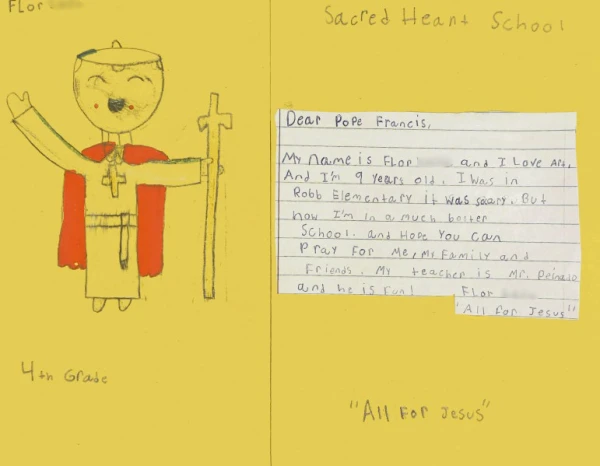 Flor
Sacred Heart School
Dear Pope Francis,
My name is Flor and I Love Art.
And I'm 9 years old. I was in
Robb Elementary it was scary. But
now I'm in a much better
School. and Hope You can
Pray For Me, My Family and
Friends. My teacher is Mr.
and he is fun! Flor
"All for Jesus"
4th Grade
"All For Jesus"